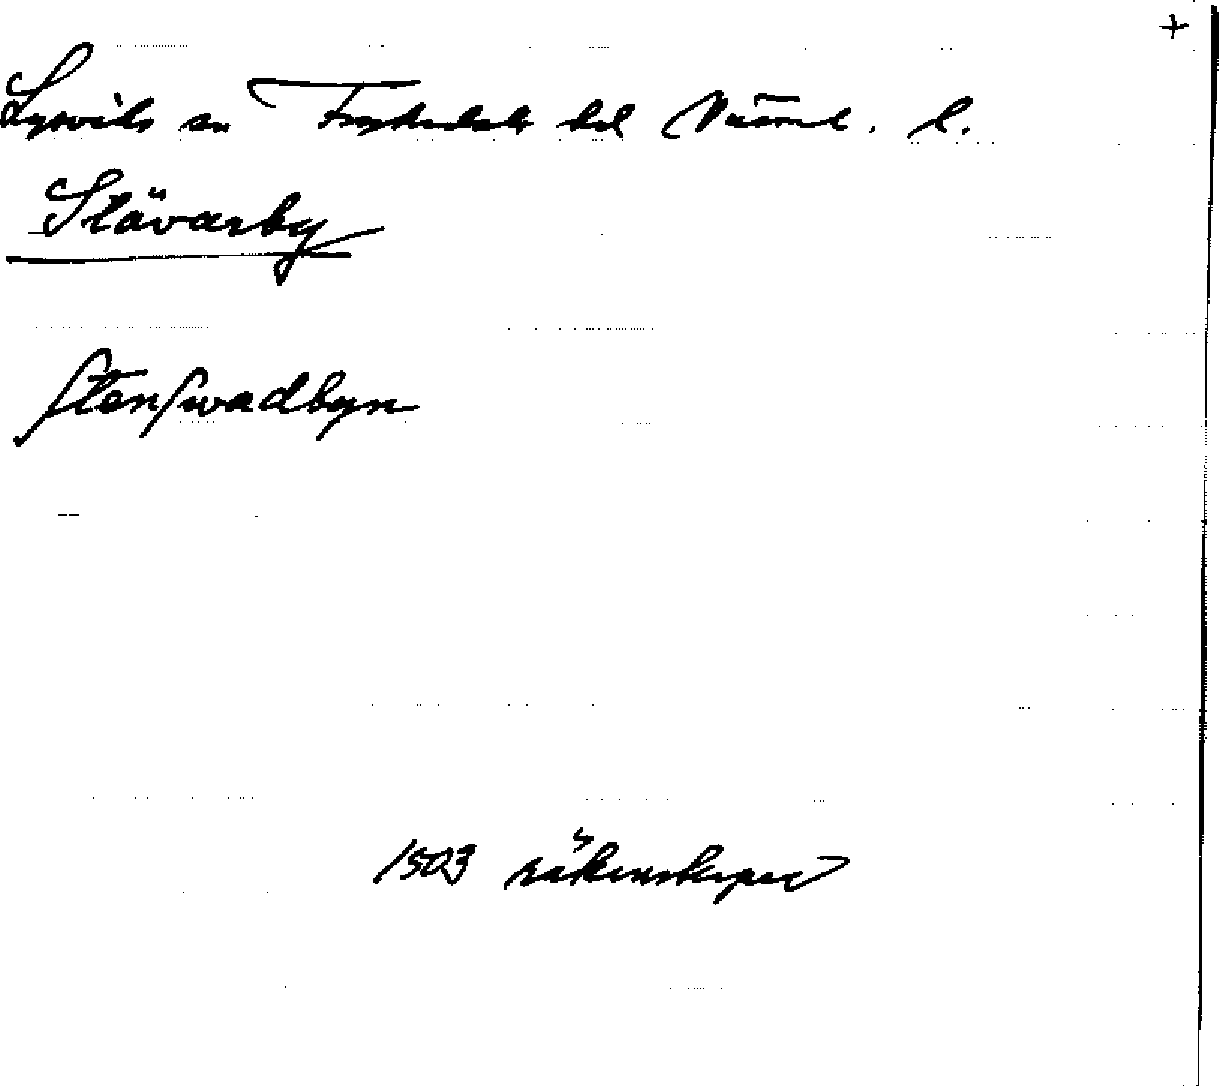 +
Lysviks sn Fryksdals hd Värml. l.
Stävarby
Stenswadbyn
1503 räkenskaper